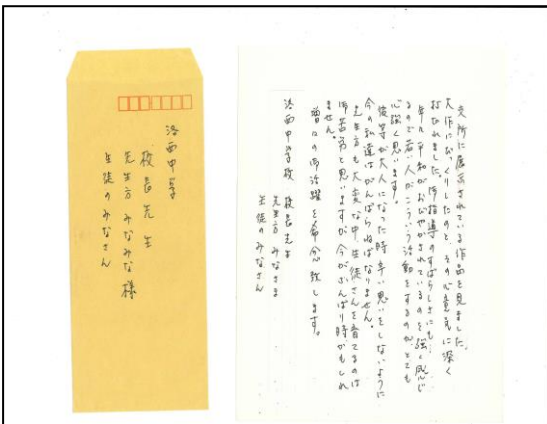 洛西中学
校長先生
先生方みなみな様
生徒のみなさん
支所に展示されている作品を見ました。
大作にびっくりしたのと、その心意気に深く
打たれました。御指導のすばらしさにも…
年々平和がおびやかされているのを強く感じ
るので若い人がこういう活動をするのが、とても
心強く思います。
彼等が大人になった時辛い思いをしないように
今の私達はがんばらねばなりません。
先生方も大変な中、生徒さんを育てるのは
御苦労と思いますが今がふんばり時かもしれ
ません。
増々の御活躍を希念致します。
洛西中学校 校長先生
先生方みなさま
生徒のみなさん